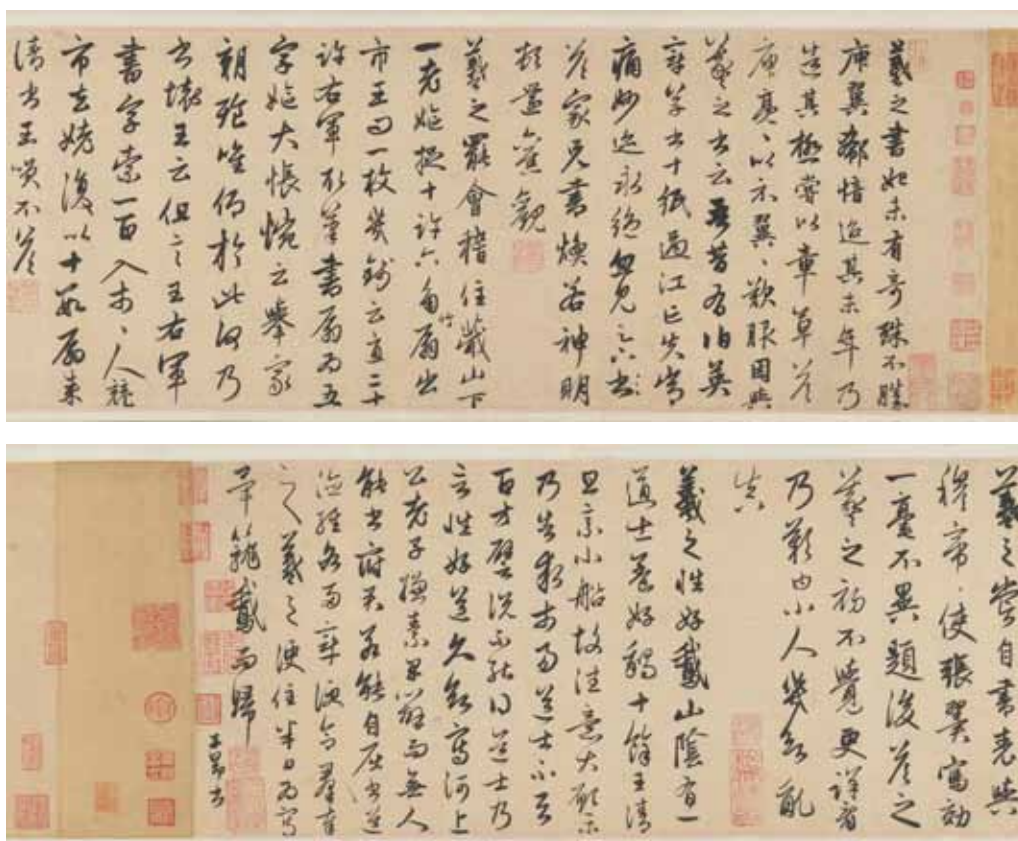 羲之書初未有奇殊不勝
庾翼郗愔迨其末年乃
造其極嘗以章草答
庾亮、以示翼、歎服因與
羲之書云吾昔有伯英
章草書十紙過江亡失常
痛妙迹永絕忽見
答家兄書煥若神明
頓還舊觀
羲之罷會稽住蕺山下
一老嫗捉十許六角竹扇出
市王問一枚幾錢云直二十
許右軍取筆書扇為五
字嫗大悵惋云舉家
朝飡唯仰於此何乃
書壞王云但言王右軍
書字索一百入市、人競
市去姥復以十數扇來
請書王笑不答
羲之嘗自書表與
穆帝、使張翼寫効
一毫不異題後答之
羲之初不覺更詳看
乃歎曰小人幾欲亂
真
羲之性好鵞山陰有一
道士養好鵝十餘王清
旦乘小船故往意大願樂
乃告求市易道士不與
百方譬說不能得道士乃
言性好道久欲寫河上
公老子縑素早辦而無人
能書府君若能自屈書道
德經各兩章便合羣奉
之羲之便住半日為寫
畢籠鵞而歸
子昂書